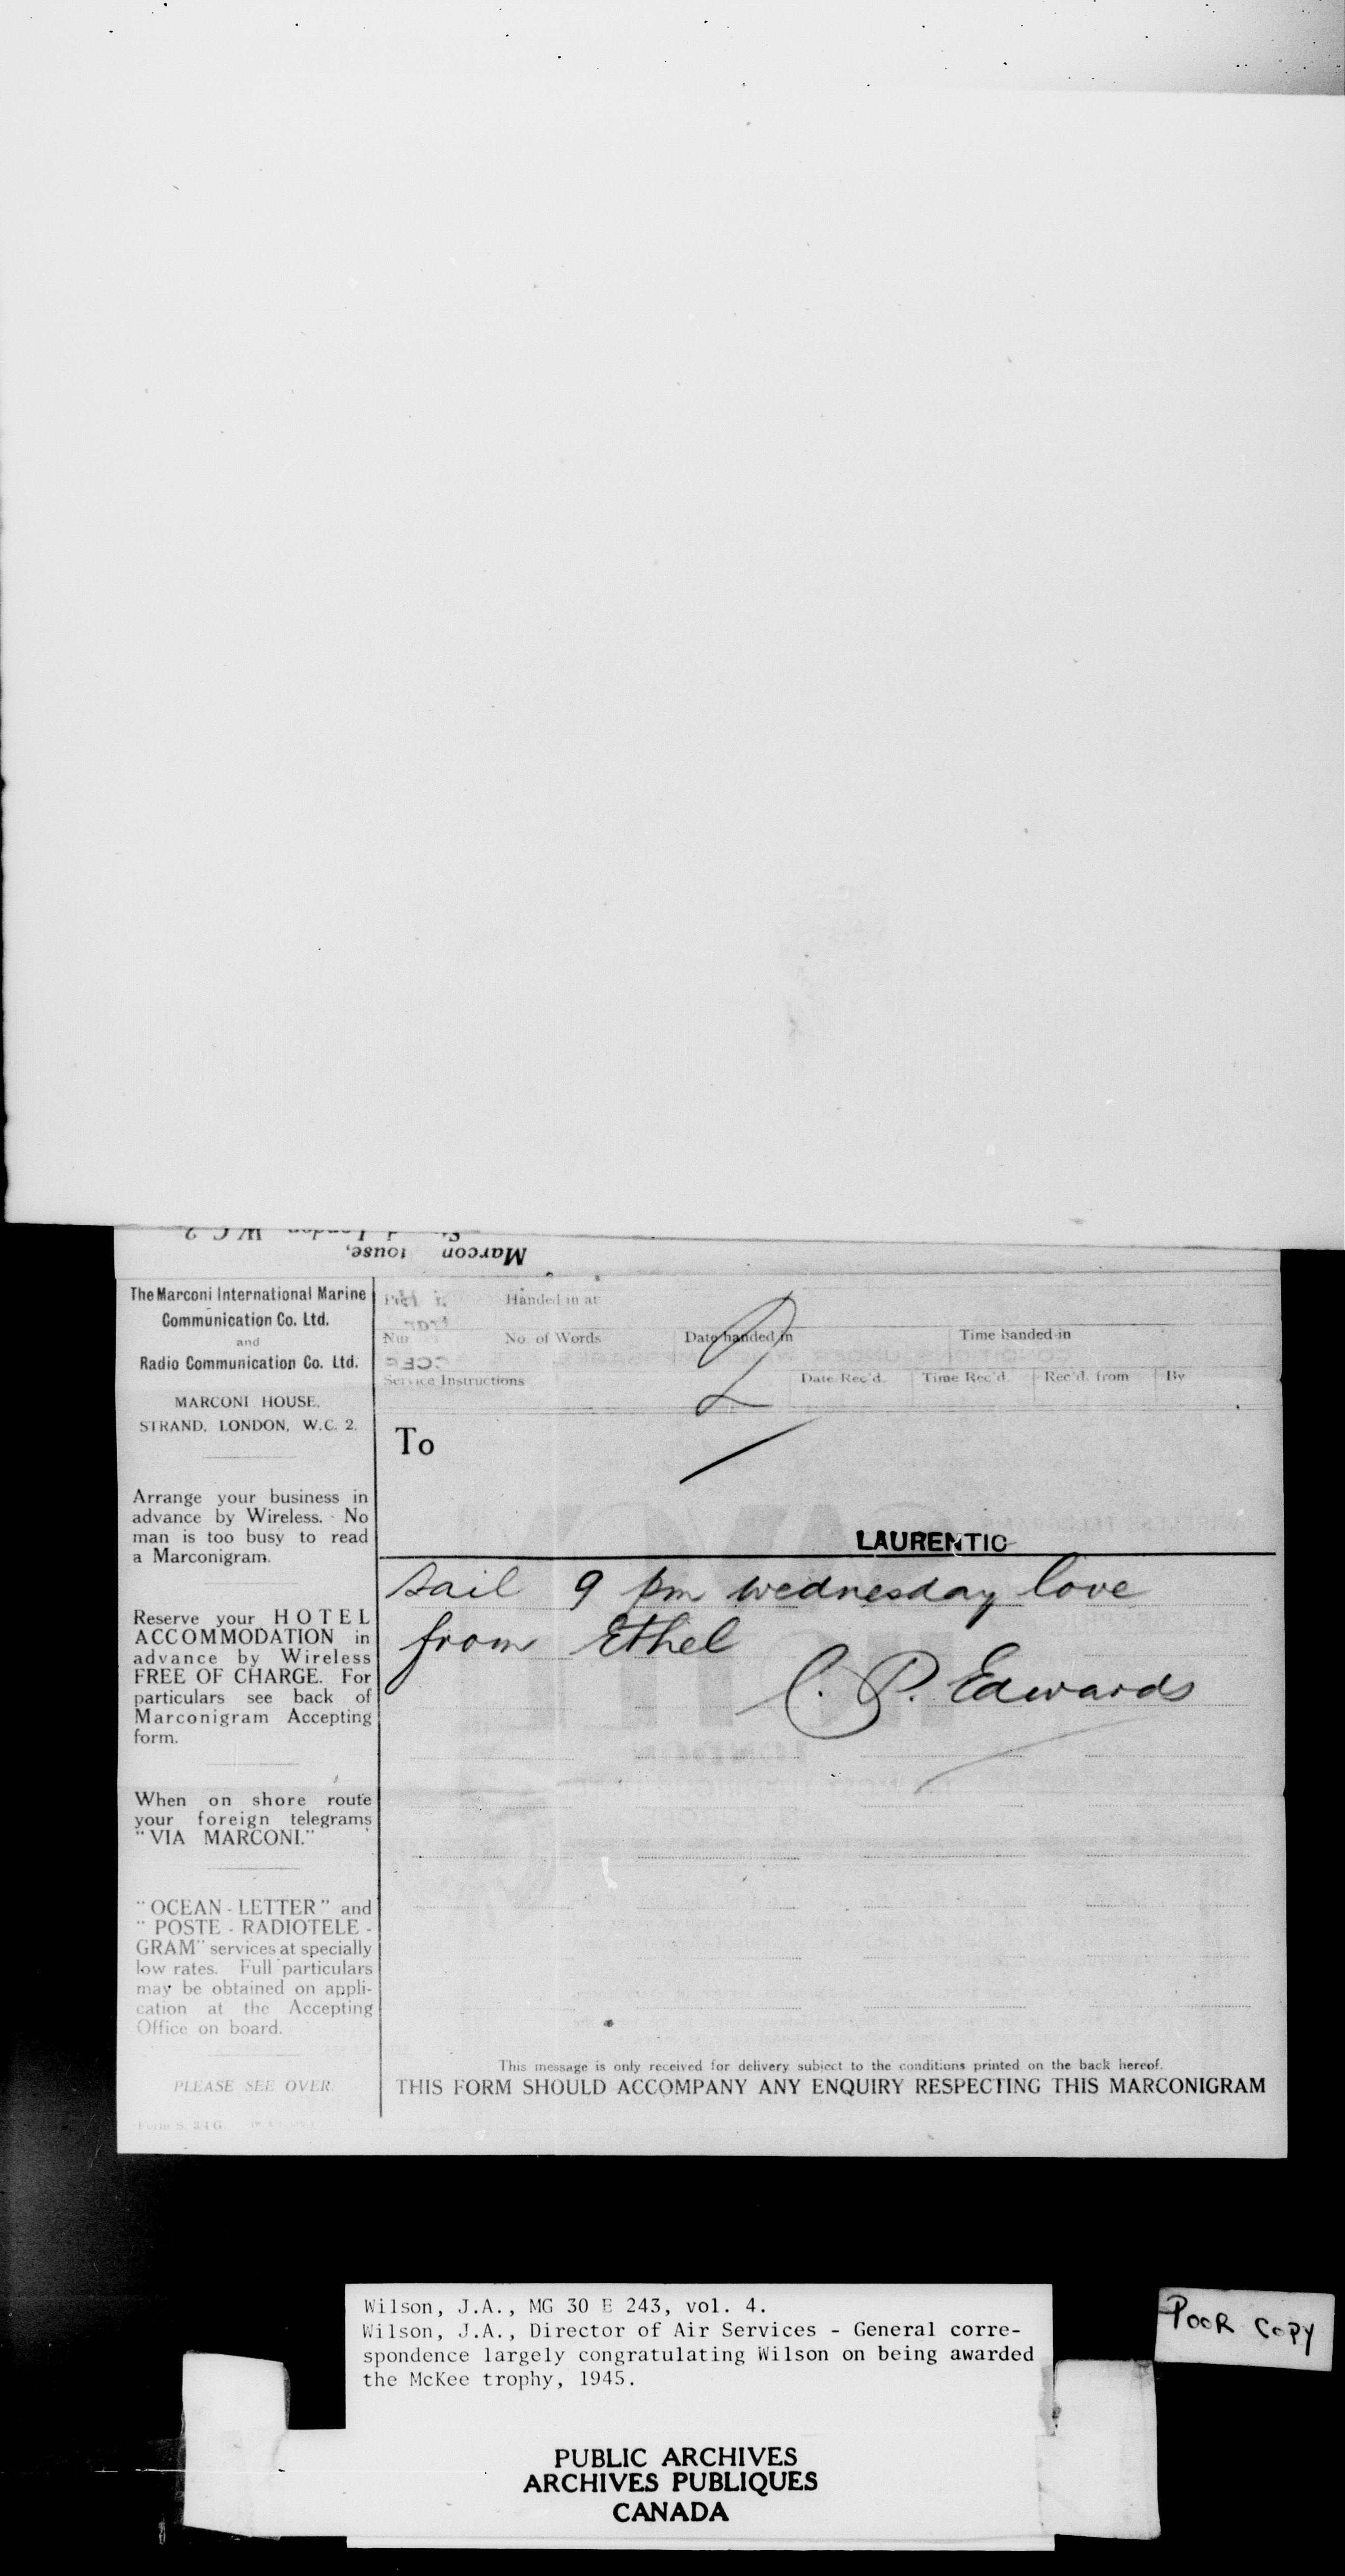 The Marconi International Marine
Communication Co. Ltd.
and
Radio Communication Co. Ltd.
MARCONI HOUSE,
STRAND, LONDON, W.C. 2.
Arrange your business in
advance by Wireless. No
man is too busy to read
a Marconigram.
Reserve your HOTEL
ACCOMMODATION in
advance by Wireless
FREE OF CHARGE. For
particulars see back of
Marconigram Accepting
form.
When on shore route
your foreign telegrams
"VIA MARCONI."
"OCEAN - LETTER" and
"POSTE - RADIOTELE -
GRAM" services at specially
low rates. Full particulars
may be obtained on appli-
cation at the Accepting
Office on board.
PLEASE SEE OVER.
Handed in at
No. of Words Date handed in Time handed in
Service Instructions Date Rec'd. Time Rec'd. Rec'd. from By
To
LAURENTIC
sail 9 pm wednesday love
from Ethel
C. P. Edwards
This message is only received for delivery subject to the conditions printed on the back hereof.
THIS FORM SHOULD ACCOMPANY ANY ENQUIRY RESPECTING THIS MARCONIGRAM
Wilson, J.A., MG 30 E 243, vol. 4.
Wilson, J.A., Director of Air Services - General corre-
spondence largely congratulating Wilson on being awarded
the McKee trophy, 1945.
POOR COPY
PUBLIC ARCHIVES
ARCHIVES PUBLIQUES
CANADA